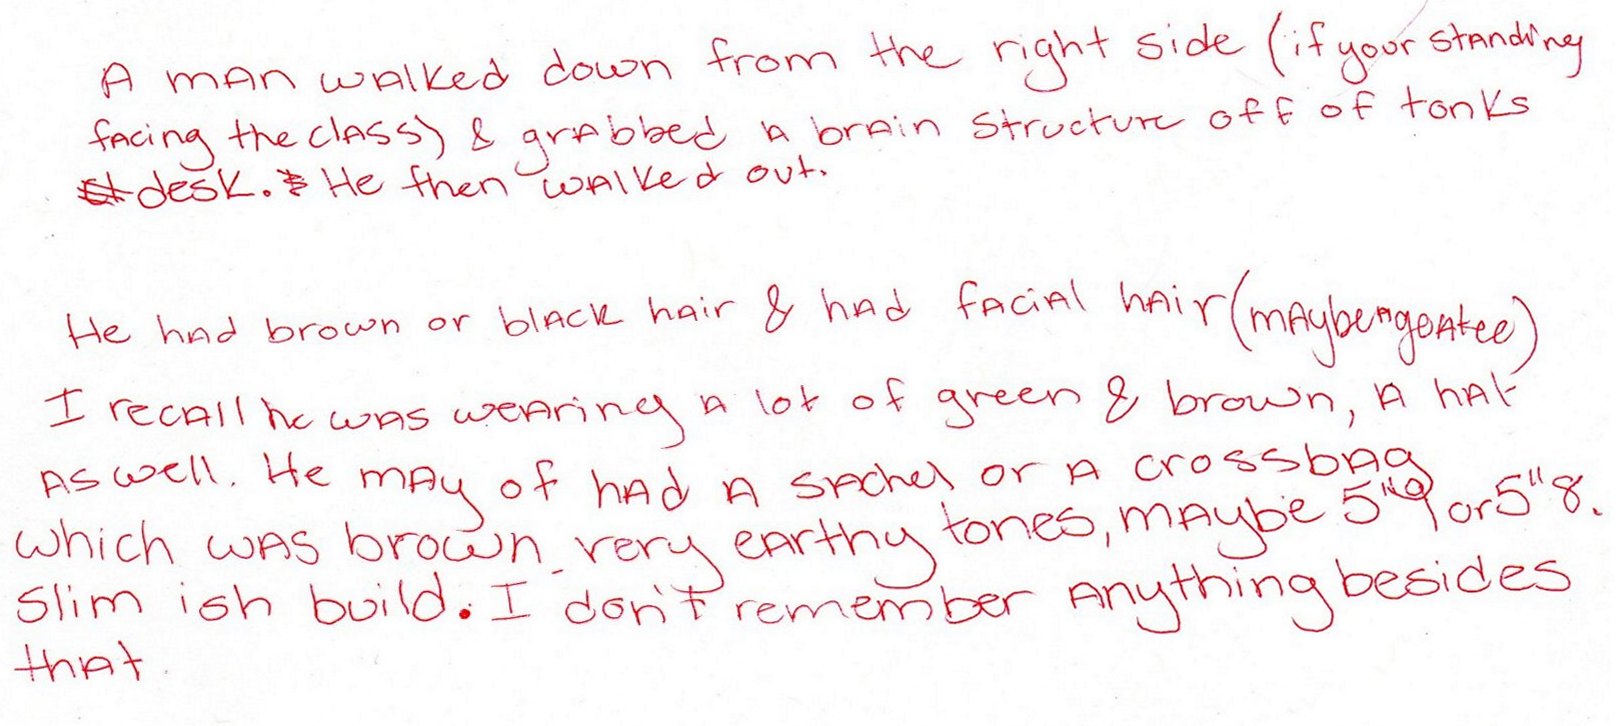 A man walked down from the right side (if your standing
facing the class) & grabbed a brain structure off of tonks
desk. He then walked out.
He had brown or black hair & had facial hair (maybe a goatee)
I recall he was wearing a lot of green & brown, a hat
as well. He may of had a sachel or a crossbag
which was brown very earthy tones, maybe 5"9 or 5"8.
Slim ish build. I don't remember anything besides
that.